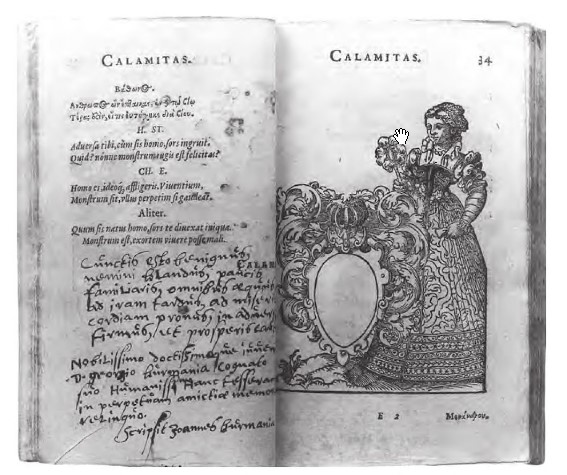 CALAMITAS.
Βάθωνος.
Ἄνθρωπος ὢν ἔπταικας
Τέρας
H. ST.
Aduersa tibi, cùm sis homo, sors ingruit.
Quid? nónne monstrum iugis est felicitas?
CH. E.
Homo es, ideóq; affligeris. Viuentium,
Monstrum sit, vllus perpetim si gaudeat.
Aliter.
Quum sis natus homo, sors te diuexat iniqua.
Monstrum est, exortem viuere posse mali.
Cunctis esto benignus,
nemini blandus, paucis
familiaris omnibus æquus
iram tardus, ad miseri
cordiam pronus, in aduer
firmus, et prosperis
Nobilissimo doctissimoque
D. georgio burmania cognato
suo Humaniss: Hanc tesseram
in perpetuam amicitiæ memor
relinquo.
Scripsit Joannes burmania
CALAMITAS. 34
E 2 Μενάνδρου.